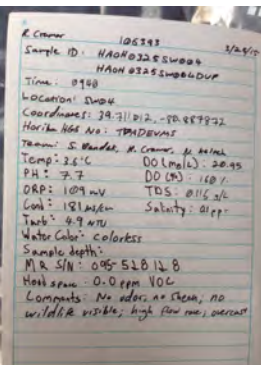 R Cramer 106393 3/24/15
Sample ID: HAOH0325SW004
HAOH0325SW004DUP
Time: 0940
Location: SW04
Coordinates: 39.711012, -80.887872
Horiba HGS No: TPADEVMS
Team: S. Bandes, R. Cramer, N.
Temp: 3.6°C DO (mg/L): 20.95
PH: 7.7 DO (%): 160%
ORP: 109 mV TDS: 0.116 g/L
Cond: 181 µs/cm Salinity: .01 ppt
Turb: 4.9 NTU
Water Color: Colorless
Sample depth:
MR S/N: 095-528128
Head space: 0.0 ppm VOC
Comments: No odor, no sheen, no
wildlife visible; high flow rate; overcast